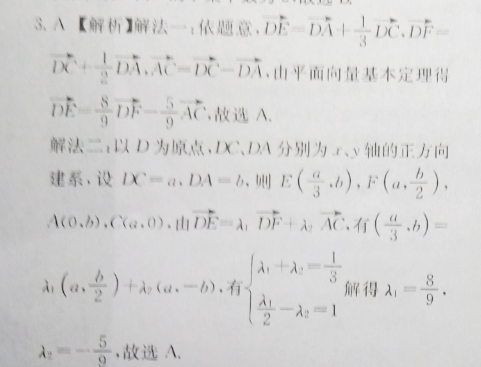 3. A 【解析】解法一:依题意,$\overrightarrow{DE}=\overrightarrow{DA}+\frac{1}{3}\overrightarrow{DC}$,$\overrightarrow{DF}=$
$\overrightarrow{DC}+\frac{1}{2}\overrightarrow{DA}$,$\overrightarrow{AC}=\overrightarrow{DC}-\overrightarrow{DA}$,由平面向量基本定理得
$\overrightarrow{DE}=\frac{8}{9}\overrightarrow{DF}-\frac{5}{9}\overrightarrow{AC}$,故选 A.
解法二:以 D 为原点,DC、DA 分别为 x、y 轴的正方向
建系,设 DC=a,DA=b,则 $E\left(\frac{a}{3},b\right)$,$F\left(a,\frac{b}{2}\right)$,
A(0,b),C(a,0),由$\overrightarrow{DE}=\lambda_1\overrightarrow{DF}+\lambda_2\overrightarrow{AC}$,有$\left(\frac{a}{3},b\right)=$
$\lambda_1\left(a,\frac{b}{2}\right)+\lambda_2(a,-b)$,有$\begin{cases}\lambda_1+\lambda_2=\frac{1}{3}\\\frac{\lambda_1}{2}-\lambda_2=1\end{cases}$解得 $\lambda_1=\frac{8}{9}$,
$\lambda_2=-\frac{5}{9}$,故选 A.